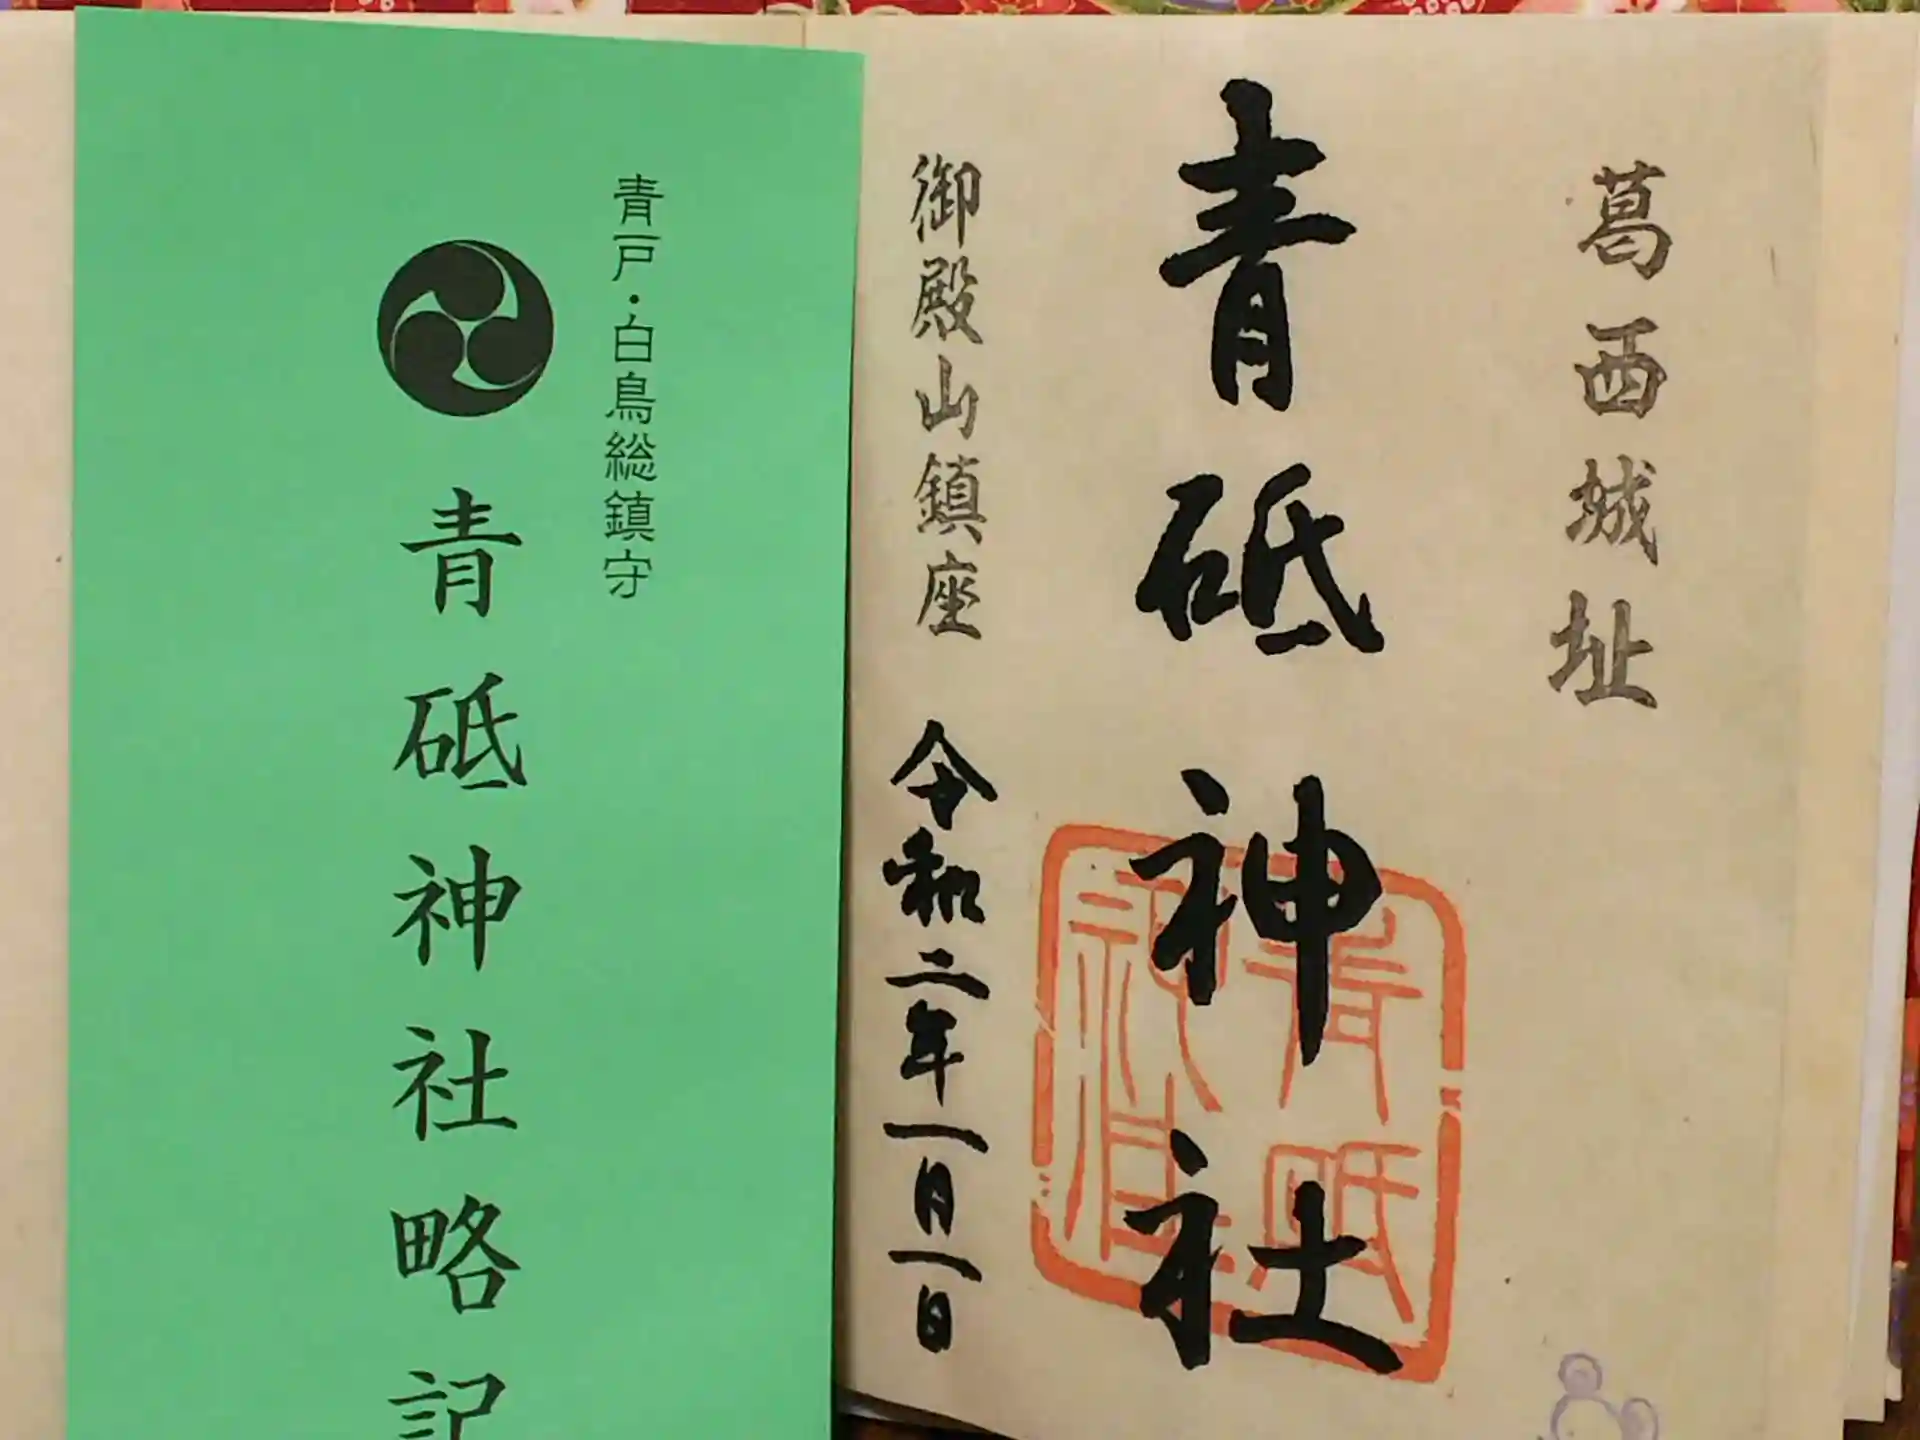 葛西城址
青砥神社
御殿山鎮座
令和二年一月一日
青戸・白鳥総鎮守
青砥神社略記